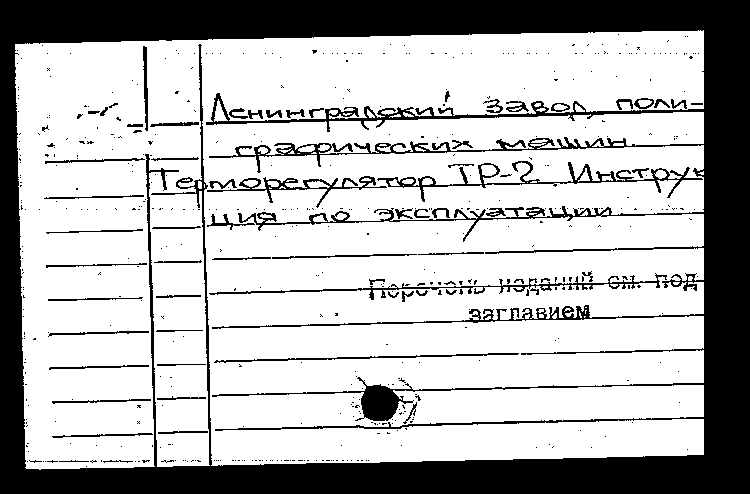 Ленинградский завод поли-
графических машин.
Терморегулятор ТР-2. Инструк
ция по эксплуатации.
Перечень изданий см. под
заглавием